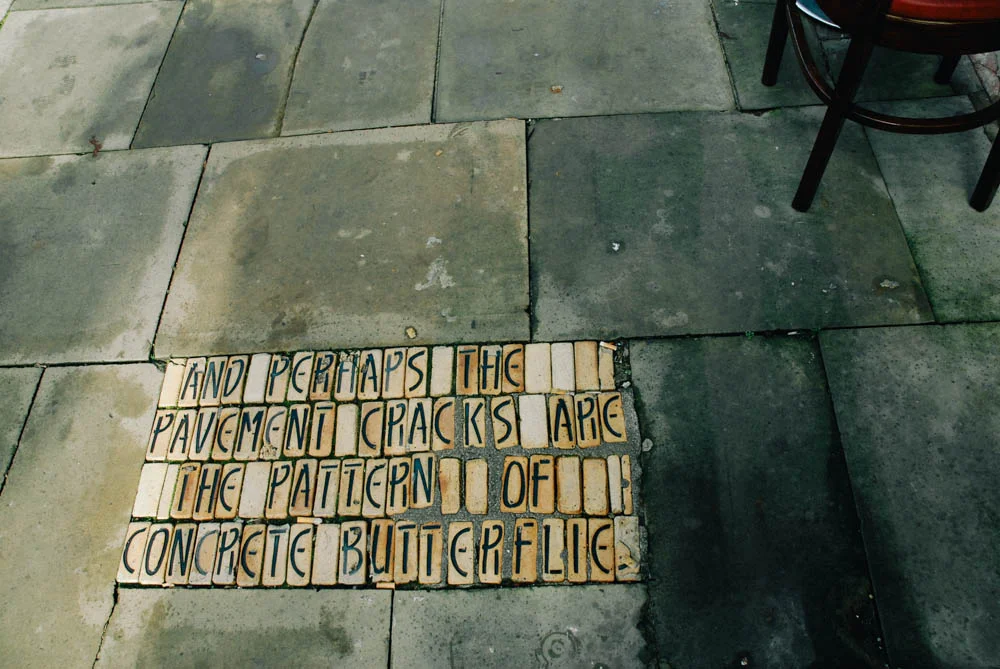 AND PERHAPS THE
PAVEMENT CRACKS ARE
THE PATTERN OF
CONCRETE BUTTERFLIE